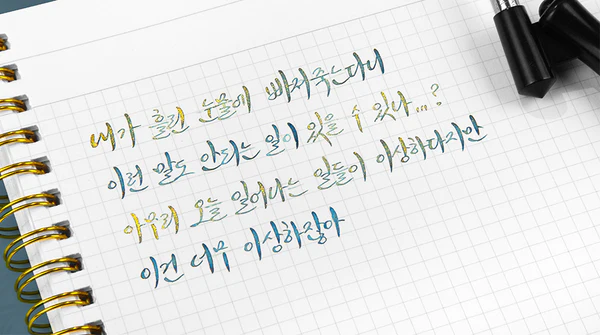 내가 흘린 눈물에 빠져죽는다니
이런 말도 안되는 일이 있을 수 있나...?
아무리 오늘 일어나는 일들이 이상하다지만
이건 너무 이상하잖아